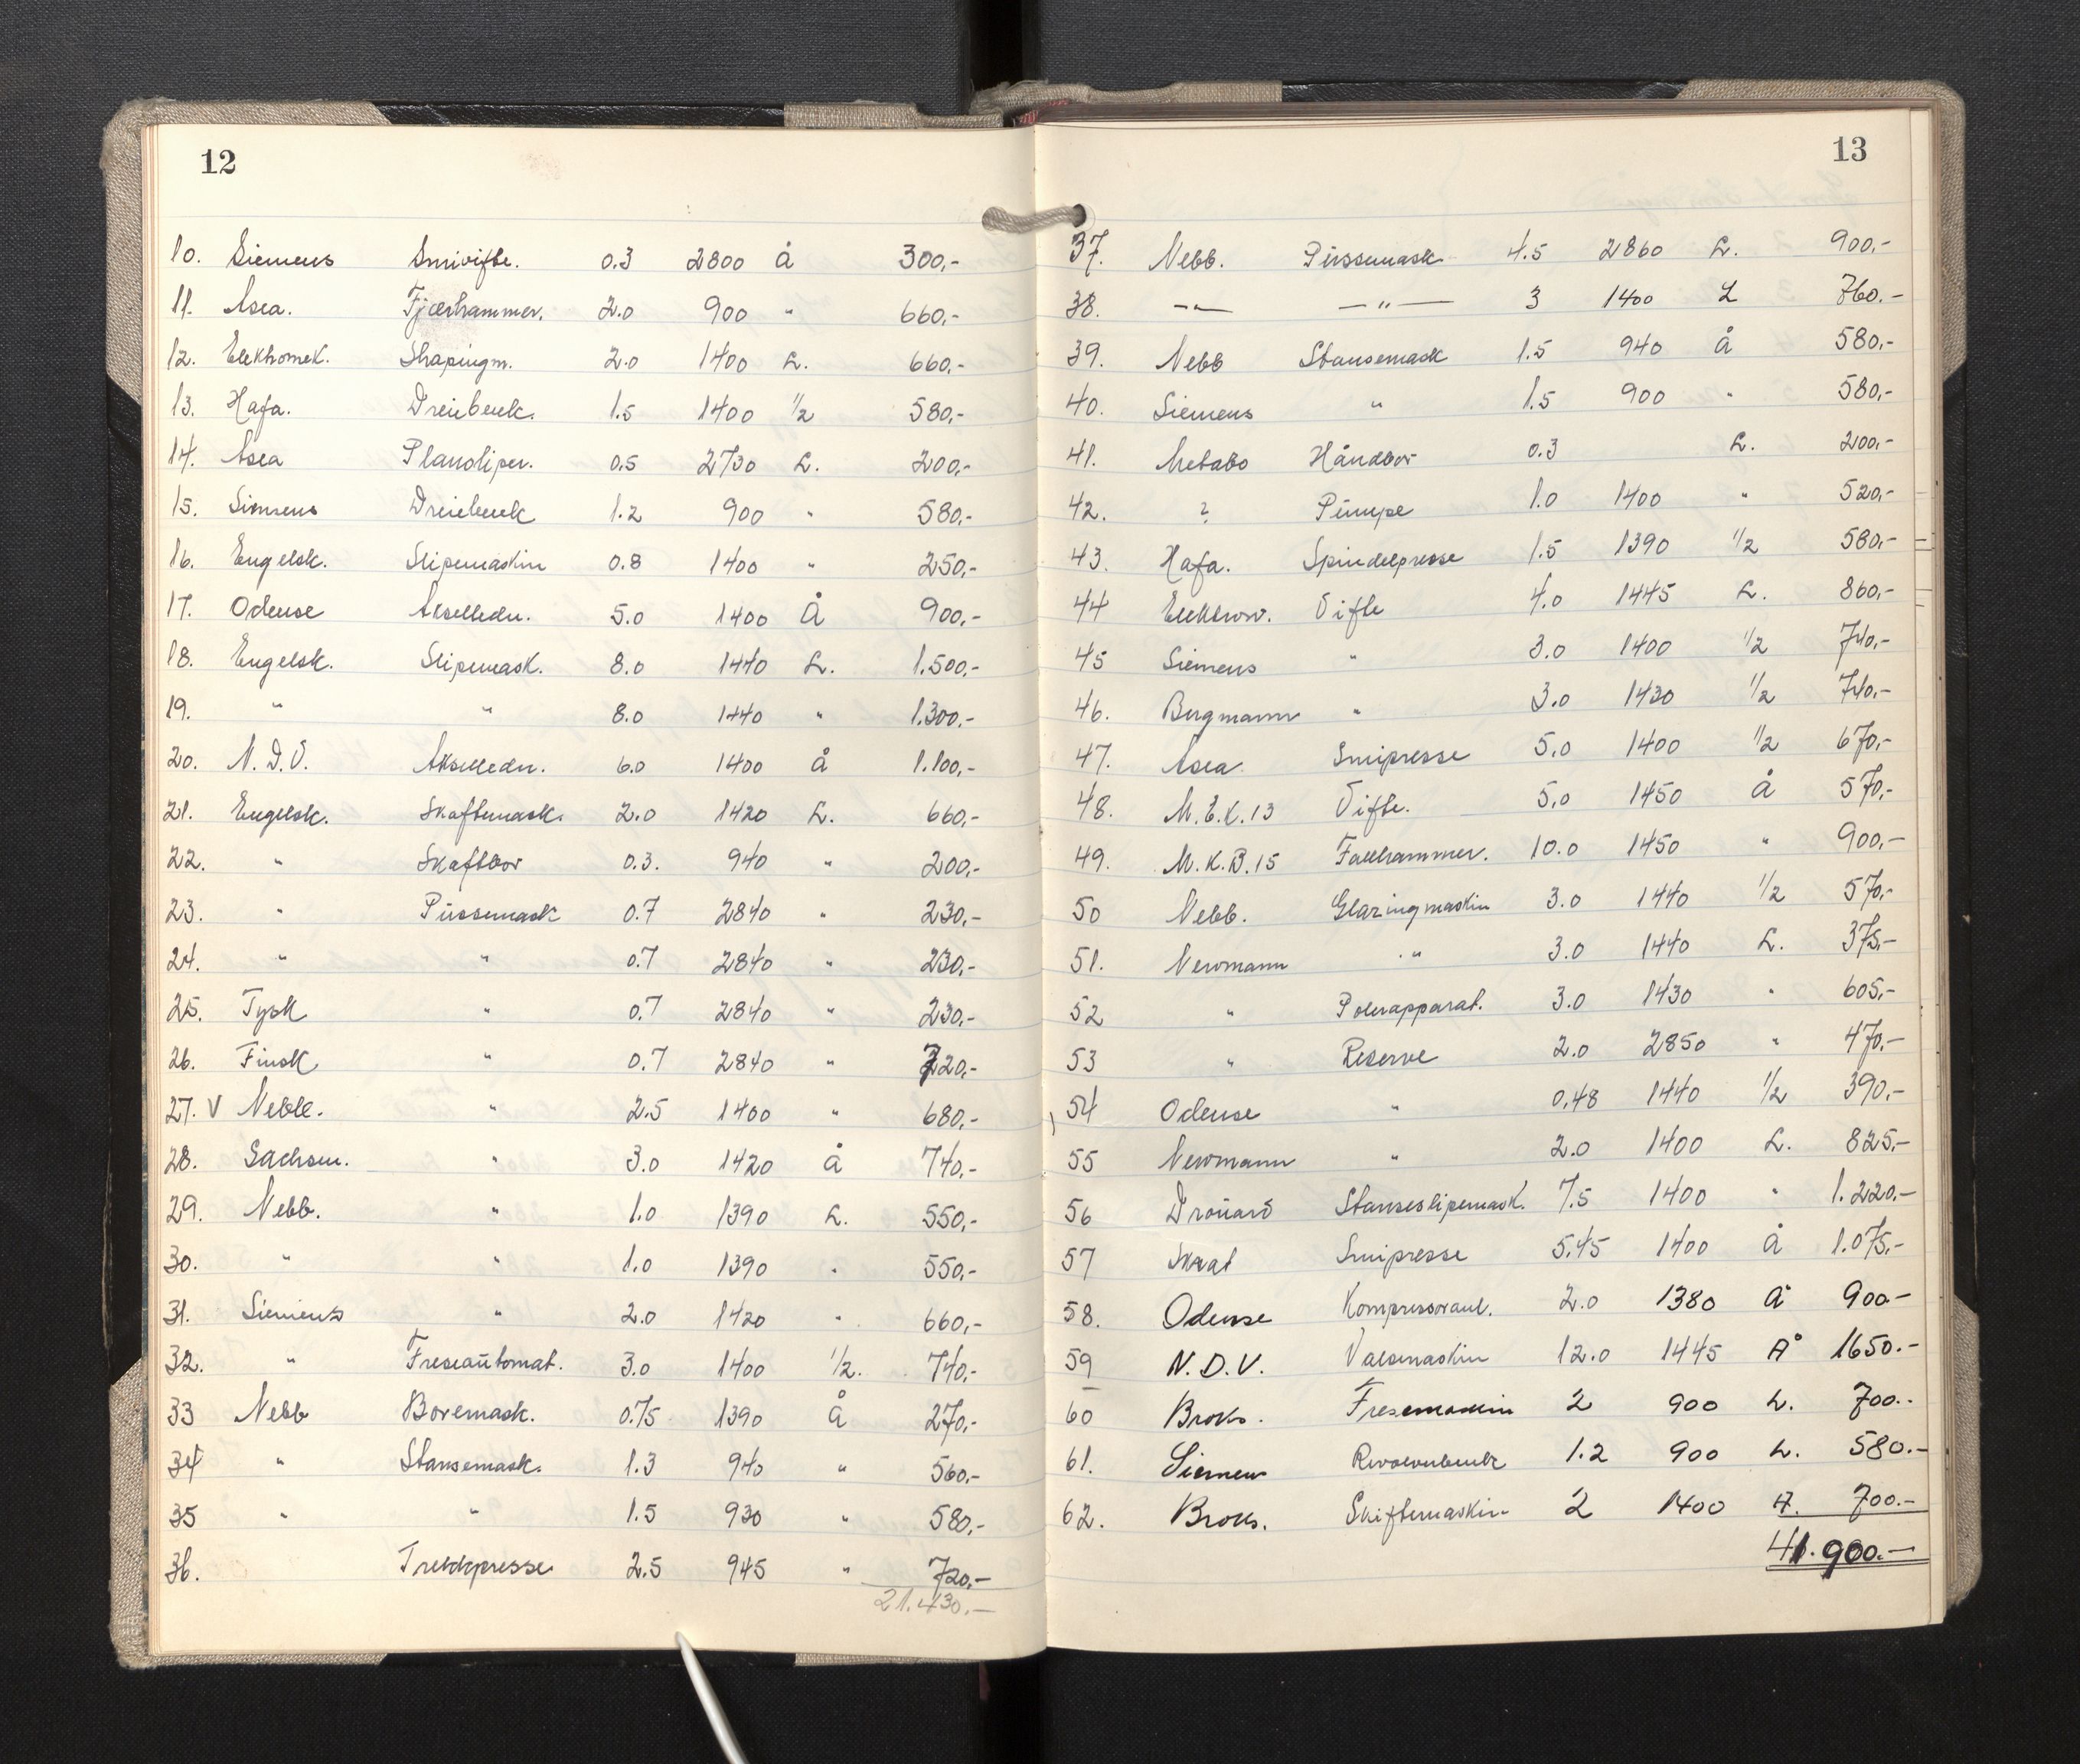 12
10. Siemens Smivifte. 0.3 2800 Å 300,-
11. Asea. Fjærhammer. 2.0 900 " 660,-
12. Elektromek. Shapingm. 2.0 1400 L. 660,-
13. Hafa. Dreiebenk. 1.5 1400 1/2 580,-
14. Asea Plansliper. 0.5 2730 L. 200,-
15. Siemens Dreiebenk 1.2 900 " 580,-
16. Engelsk. Slipemaskin 0.8 1400 " 250,-
17. Odense Akselledn. 5.0 1400 Å 900,-
18. Engelsk. Slipemask. 8.0 1440 L. 1.500,-
19. " " 8.0 1440 " 1.300,-
20. N.D.V. Akselledn. 6.0 1400 Å 1.100,-
21. Engelsk. Skaftemask. 2.0 1420 L. 660,-
22. " Skaftbor 0.3. 940 " 200,-
23. " Pussemask 0.7 2840 " 230,-
24. " " 0.7 2840 " 230,-
25. Tysk " 0.7 2840 " 230,-
26. Finsk " 0.7 2840 " 220,-
27. V Nebb. " 2.5 1400 " 680,-
28. Sachsen. " 3.0 1420 Å 740,-
29. Nebb. " 1.0 1390 L. 550,-
30. " " 1.0 1390 " 550,-
31. Siemens " 2.0 1420 " 660,-
32. " Freseautomat. 3.0 1400 1/2. 740,-
33 Nebb Boremask. 0.75 1390 Å 270,-
34 " Stansemask. 1.3 940 " 560,-
35 " " 1.5 930 " 580,-
36. Trekkpresse 2.5 945 " 720,-
21.430,-
13
37. Nebb. Pussemask 4.5 2860 L. 900,-
38. -"- -"- 3 1400 L 760.-
39. Nebb Stansemask 1.5 940 Å 580,-
40. Siemens " 1.5 900 " 580,-
41. Metabo Håndbor 0.3 L. 200,-
42. ? Pumpe 1.0 1400 " 520,-
43. Hafa. Spindelpresse 1.5 1390 1/2 580,-
44 Elektrom. Vifte 4.0 1445 L. 860,-
45 Siemens " 3.0 1400 1/2 740,-
46. Bergmann " 3.0 1430 1/2 740,-
47. Asea Smipresse 5.0 1400 1/2 670,-
48. M.E.K.13 Vifte. 5.0 1450 Å 570,-
49. M.K.B.15 Fallhammer. 10.0 1450 " 900,-
50 Nebb. Glazingmaskin 3.0 1440 1/2 570,-
51. Newmann " 3.0 1440 L. 375,-
52 " Polerapparat. 3.0 1430 " 605,-
53 " Reserve 2.0 2850 " 470,-
54 Odense " 0,48 1440 1/2 390,-
55 Newmann " 2.0 1400 L. 825,-
56 Stanseslipemask. 7.5 1400 " 1.220,-
57 Skrat Smipresse 5.45 1400 Å 1.075,-
58. Odense Kompressoranl. 2.0 1380 Å 900-
59 N.D.V. Valsemaskin 12.0 1445 Å 1650.-
60 Broks. Fresemaskin 2 900 L. 700.-
61. Siemens Revolverbenk 1.2 900 L. 580.-
62. Broks. Skiftemaskin 2 1400 700.-
41.900.-